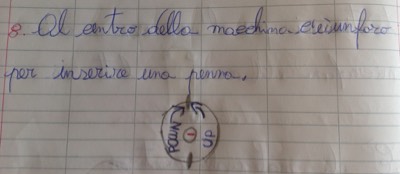 8. Al centro della macchina c'è un foro
per inserire una penna.
DOWN
UP